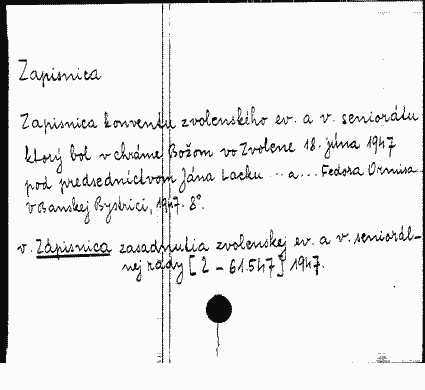 Zápisnica
Zápisnica konventu zvolenského ev. a v. seniorátu
ktorý bol v chráme Božom vo Zvolene 18. júna 1947
pod predsedníctvom Jána Lacku .. a ... Fedora Ormisa
V Banskej Bystrici, 1947. 8°.
v. Zápisnica zasadnutia zvolenskej ev. a v. seniorál-
nej rady [2 - 61.547] 1947.